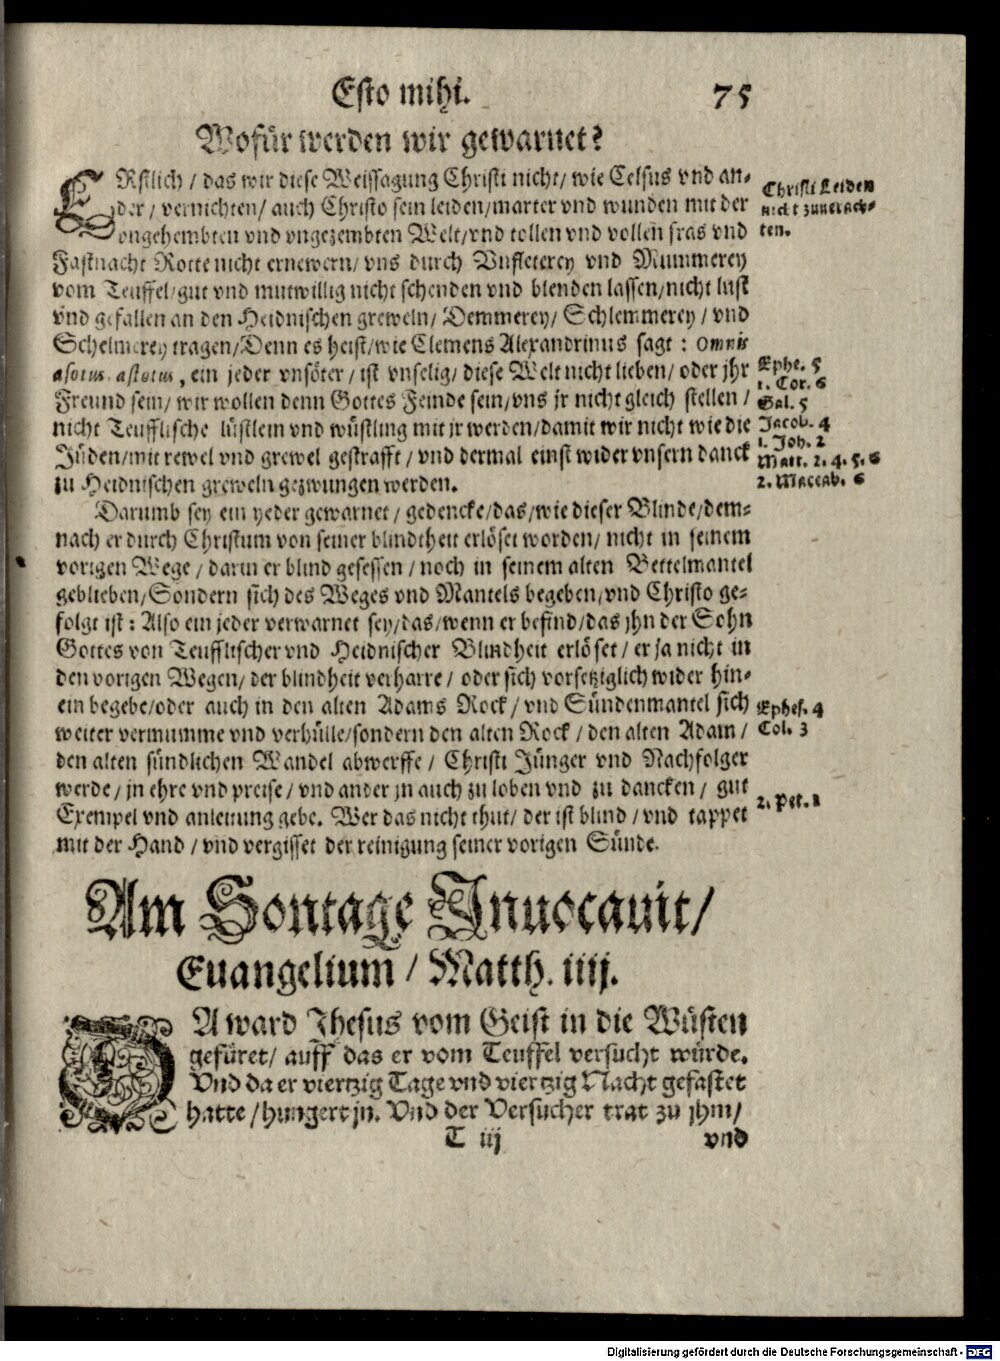 Esto mihi. 75
Wofür werden wir gewarnet?
ERstlich / das wir diese Weissagung Christi nicht / wie Celsus vnd an-
der / vernichten / auch Christo sein leiden / marter vnd wunden mit der
vngehembten vnd vngezembten Welt / vnd tollen vnd vollen fras vnd
Fastnacht Rotte nicht ernewern / vns durch Vnfleterey vnd Mummerey
vom Teuffel / gut vnd mutwillig nicht schenden vnd blenden lassen / nicht lust
vnd gefallen an den Heidnischen greweln / Demmerey / Schlemmerey / vnd
Schelmerey tragen / Denn es heist / wie Clemens Alexandrinus sagt : Omnis
asotus, astotus, ein jeder vnsöter / ist vnselig / diese Welt nicht lieben / oder jhr
Freund sein / wir wollen denn Gottes Feinde sein / vns jr nicht gleich stellen /
nicht Teufflische lüstlein vnd wüstling mit jr werden / damit wir nicht wie die
Jüden / mit rewel vnd grewel gestrafft / vnd dermal einst wider vnsern danck
zu Heidnischen greweln gezwungen werden.
Christi Leiden
nicht zuuerach-
ten.
Ephe. 5
1. Cor. 6
Gal. 5
Jacob. 4
1. Joh. 2
Matt. 2. 4. 5. 6
2. Maccab. 6
Darumb sey ein yeder gewarnet / gedencke / das / wie dieser Blinde / dem-
nach er durch Christum von seiner blindtheit erlöset worden / nicht in seinem
vorigen Wege / darin er blind gesessen / noch in seinem alten Bettelmantel
geblieben / Sondern sich des Weges vnd Mantels begeben / vnd Christo ge-
folgt ist : Also ein jeder verwarnet sey / das / wenn er befind / das jhn der Sohn
Gottes von Teufflischer vnd Heidnischer Blindheit erlöset / er ja nicht in
den vorigen Wegen / der blindheit verharre / oder sich vorsetziglich wider hin-
ein begebe / oder auch in den alten Adams Rock / vnd Sündenmantel sich
weiter vermumme vnd verhülle / sondern den alten Rock / den alten Adam /
den alten sündlichen Wandel abwerffe / Christi Jünger vnd Nachfolger
werde / jn ehre vnd preise / vnd ander jn auch zu loben vnd zu dancken / gut
Exempel vnd anleitung gebe. Wer das nicht thut / der ist blind / vnd tappet
mit der Hand / vnd vergisset der reinigung seiner vorigen Sünde.
Ephes. 4
Col. 3
2. Pet. 1
Am Sontage Inuocauit /
Euangelium / Matth. iiij.
DA ward Jhesus vom Geist in die Wüsten
gefüret / auff das er vom Teuffel versucht würde.
Vnd da er viertzig Tage vnd viertzig Nacht gefastet
hatte / hungert jn. Vnd der Versucher trat zu jhm /
T iij vnd
Digitalisierung gefördert durch die Deutsche Forschungsgemeinschaft - DFG